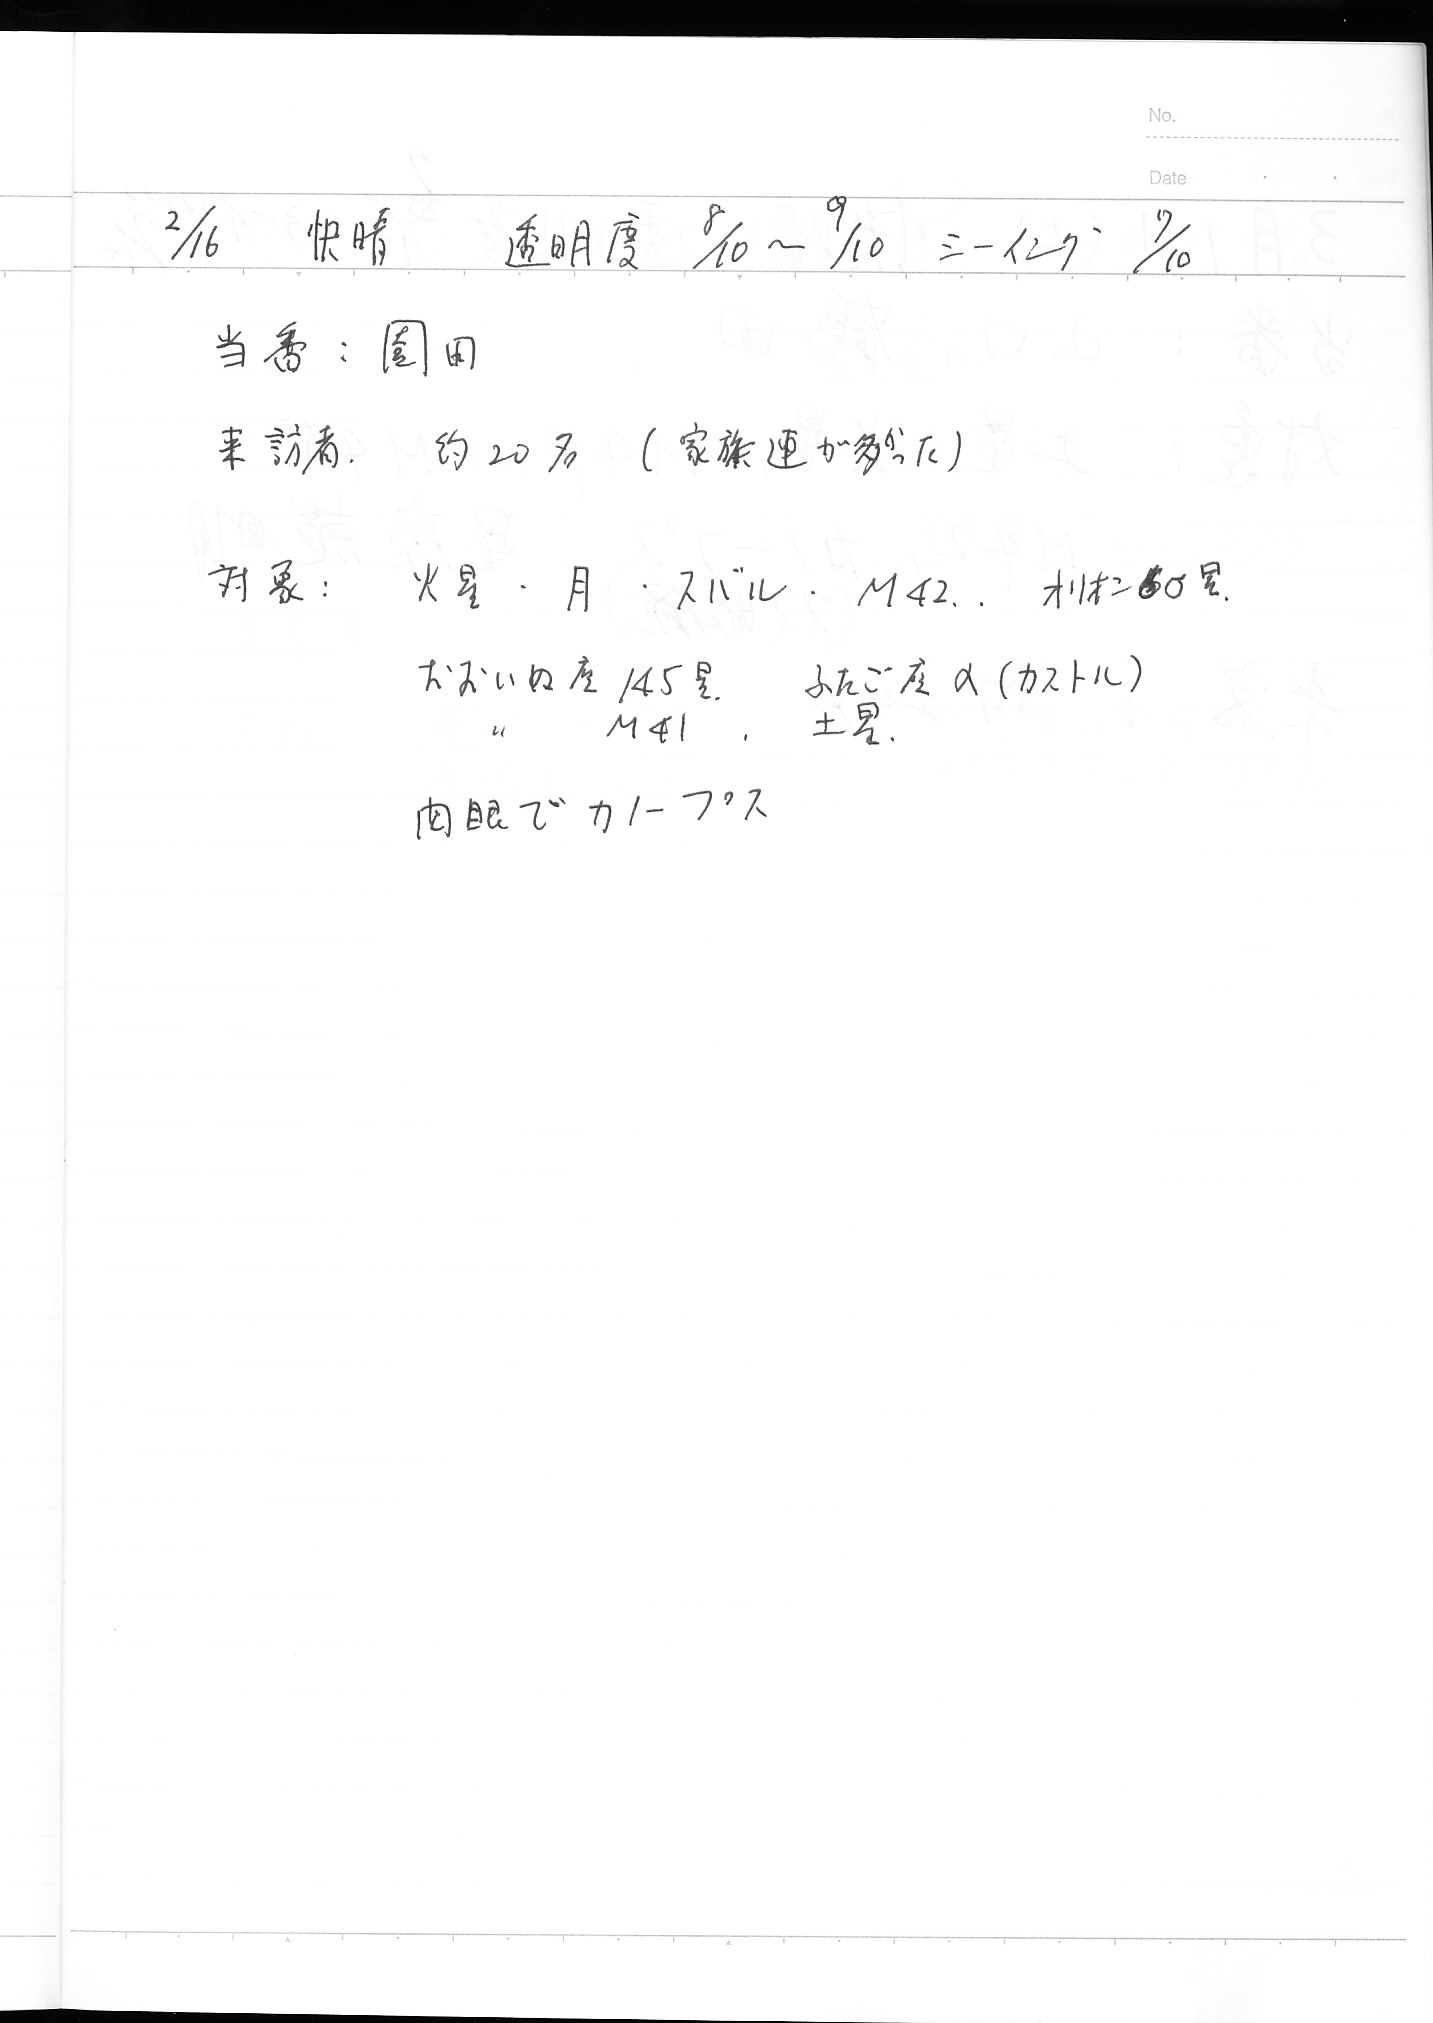 No.
Date
2/16 快晴 透明度 8/10～9/10 シーイング 7/10
当番：園田
来訪者. 約20名 (家族連が多かった)
対象： 火星・月・スバル・M42.. オリオンσ星.
おおいぬ座145星. ふたご座α(カストル)
〃 M41. 土星.
肉眼でカノープス